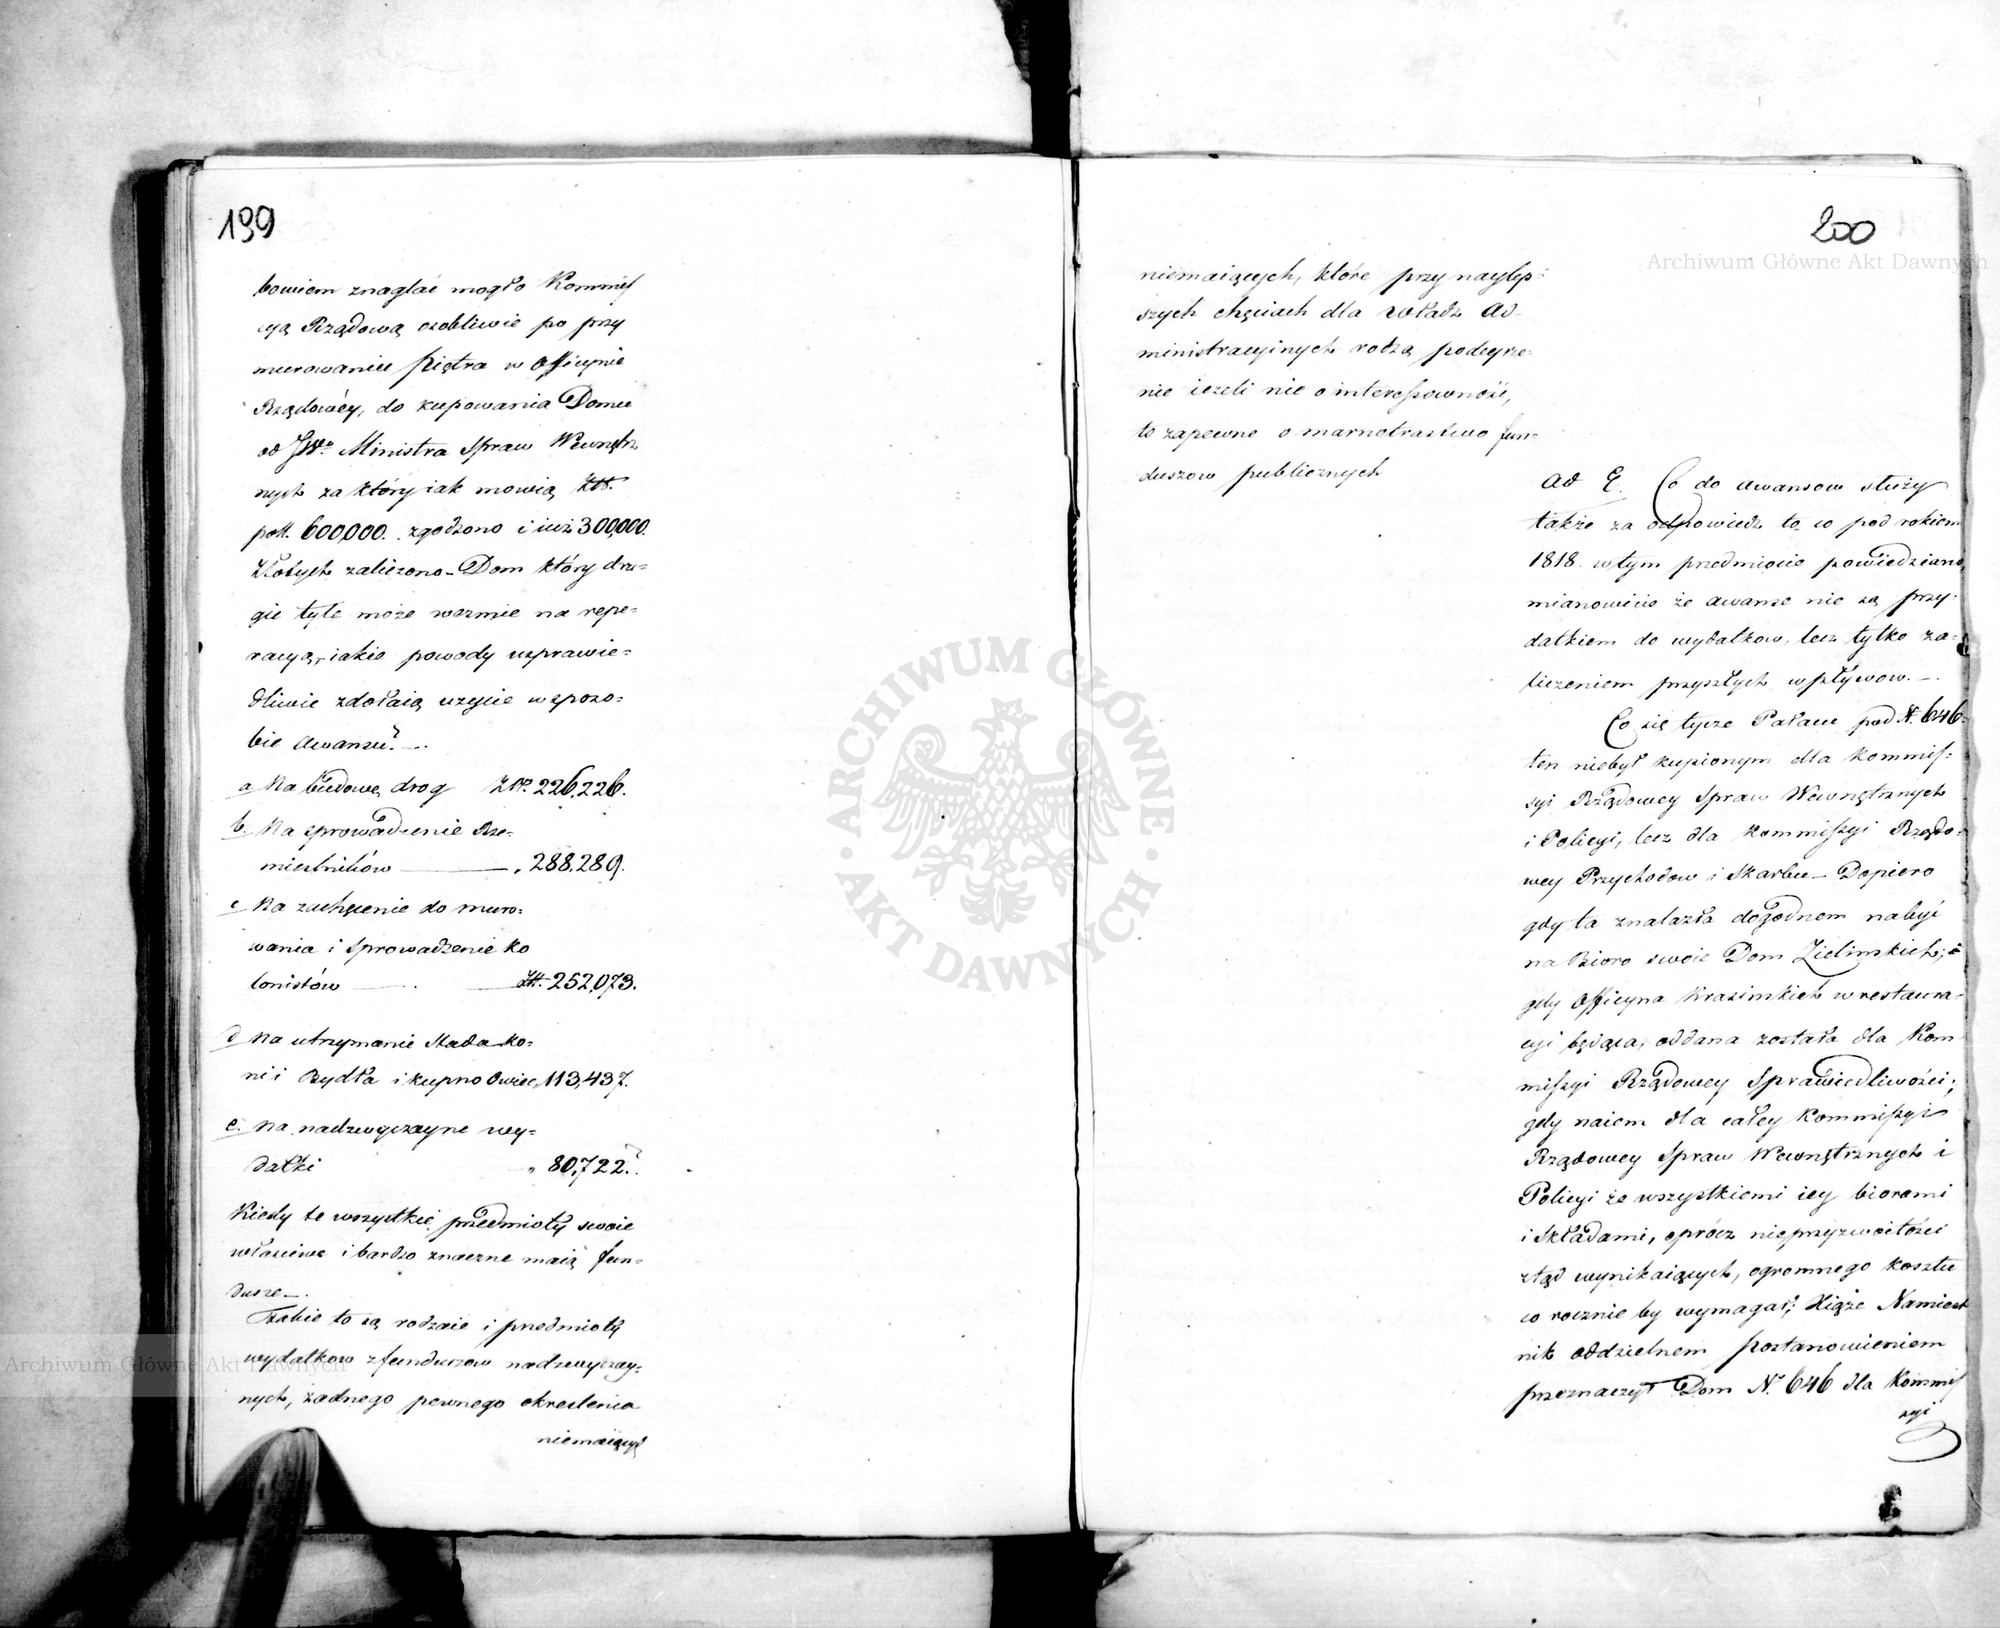 199
bowiem znaglać mogło Kommis
cyą Rządową osobliwie po przy
murowaniu piętra w Officynie
Rządowéy, do kupowania Domu
od JW° Ministra Spraw Wewnętrz
nych za który iak mowią Złł.
poll. 600,000. zgodzono i iuż 300,000.
Złotych zaliczono – Dom który dru=
gie tyle może weźmie na repe=
racyą, iakie powody usprawie=
dliwie zdołaią użycie w sposo=
bie awansu? –.
a Na budowę drog Złł. 226,226.
b. Na sprowadzenie Rze=
mieślników ——— „ 288,289.
c Na zachęcenie do muro=
wania i sprowadzenie ko
lonistów —— . —— Złł. 252,073.
d Na utrzymanie Stada ko=
ni i Bydła i kupno Owiec „ 113,437.
e. Na nadzwyczayne wy=
datki „ 80,722.
Kiedy te wszystkie przedmioty swoie
właściwe i bardzo znaczne maią fun=
dusze –.
Takie to są rodzaie i przedmioty
wydatkow z funduszow nadzwyczay=
nych, żadnego pewnego okreslenia
niemaiących
200
niemaiących, które przy naylep=
szych chęciach dla władz ad=
ministracyinych rodzą podeyrze=
nie ieżeli nie o interessowność,
to zapewne o marnotrastwo fun=
duszow publicznych
ad E. Co do awansow służy
także za odpowiedz to co pod rokiem
1818. w tym przedmiocie powiedziano,
mianowicie że awanse nie są przy=
datkiem do wydatkow, lecz tylko za=
liczeniem przyszłych wpływow. –.
Co się tycze Pałacu pod N. 646.
ten niebył kupionym dla Kommis=
syi Rządowey Spraw Wewnętrznych
i Policyi, lecz dla Kommissyi Rządo=
wey Przychodow i Skarbu – Dopiero
gdy ta znalazła dogodnem nabyć
na Bióro swoie Dom Zielinskich; i
gdy Officyna Krasinskich w restaura=
cyi będąca, oddana została dla Kom
missyi Rządowey Sprawiedliwości;
gdy naiem dla całey Kommissyi
Rządowey Spraw Wewnętrznych i
Policyi ze wszystkiemi iey biorami
i Składami, oprócz nieprzyzwoitości
ztąd wynikaiących, ogromnego kosztu
co rocznie by wymagał; Xiąże Namiest
nik oddzielnem postanowieniem
przeznaczył Dom N° 646 dla Kommis
syi
Archiwum Główne Akt Dawnych
Archiwum Główne Akt Dawnych
ARCHIWUM GŁÓWNE
AKT DAWNYCH